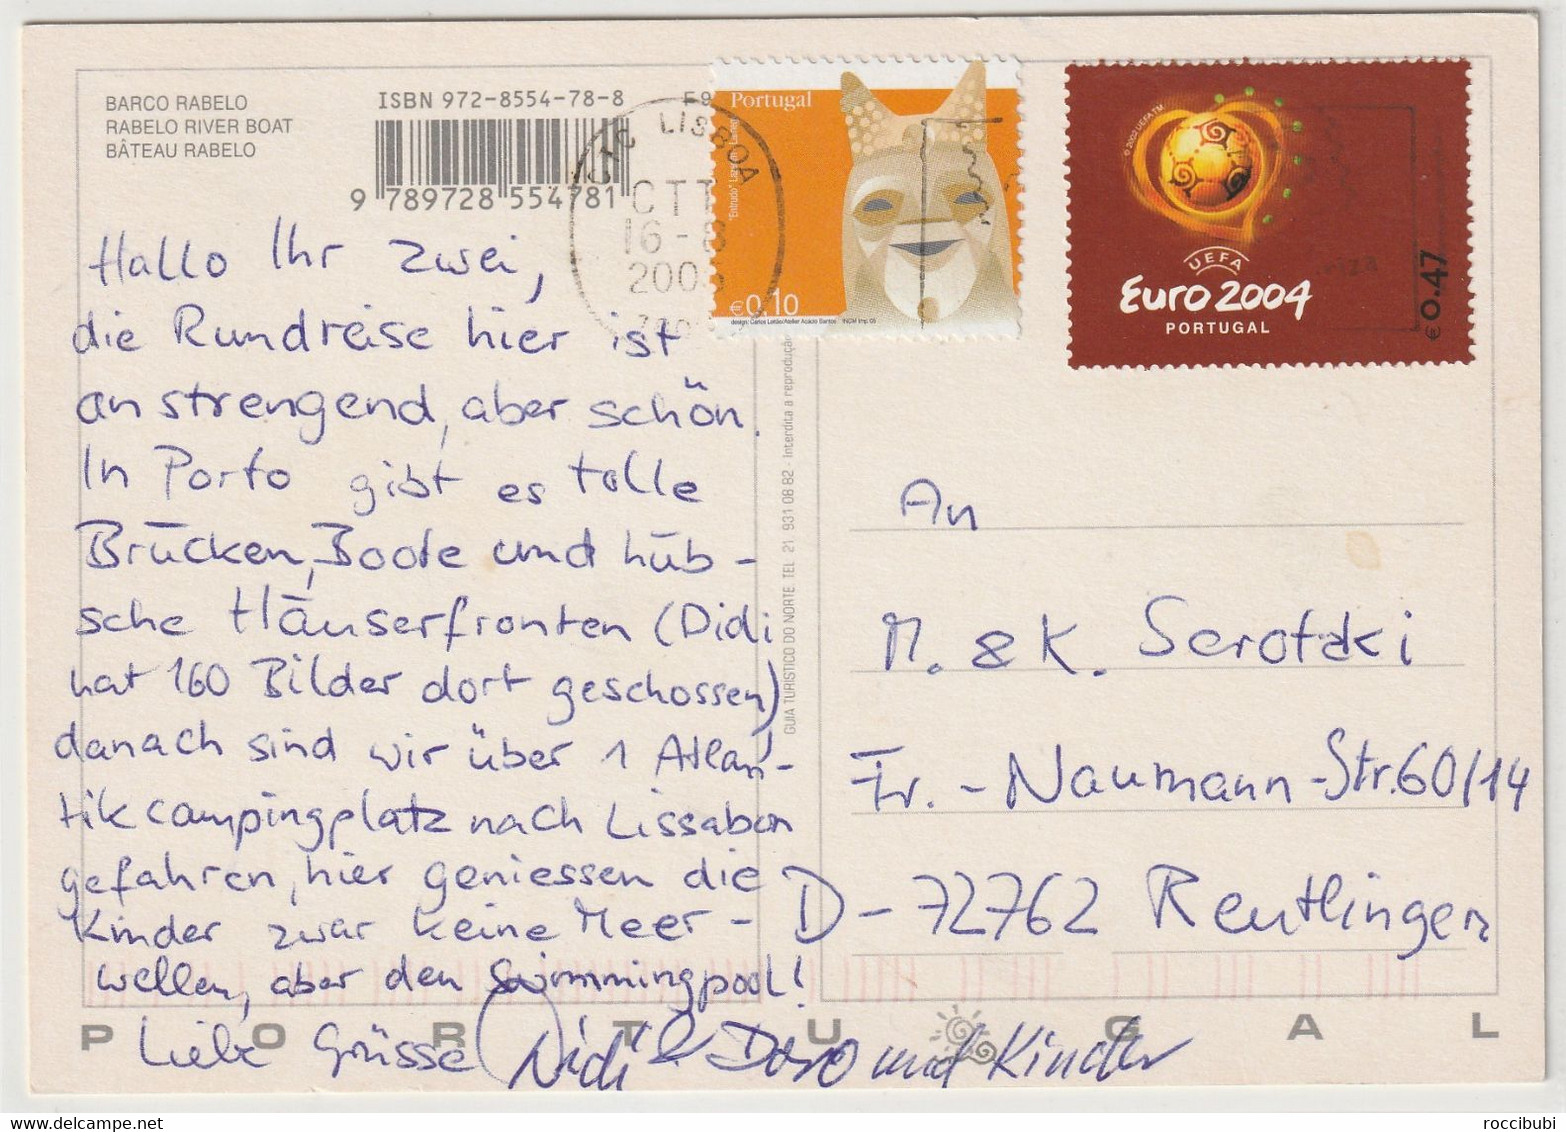 BARCO RABELO
RABELO RIVER BOAT
BÂTEAU RABELO
ISBN 972-8554-78-8
9 789728 554781
LISBOA
CTT
16-8
Portugal
€0,10
design: Carlos Leitão/Atelier Acácio Santos INCM Imp. 05
© 2002 UEFA TM
UEFA
EURO 2004
PORTUGAL
€0.47
Hallo Ihr zwei,
die Rundreise hier ist
anstrengend, aber schön.
In Porto gibt es tolle
Brücken, Boote und hüb-
sche Häuserfronten (Didi
hat 160 Bilder dort geschossen)
danach sind wir über 1 Atlan-
tikcampingplatz nach Lissabon
gefahren, hier geniessen die
Kinder zwar keine Meer-
wellen, aber den Swimmingpool!
Liebe Grüsse Didi & Doro und Kinder
GUIA TURISTICO DO NORTE TEL 21 931 08 82 - Interdita a reprodução
An
M. & K. Serotzki
Fr.-Naumann-Str. 60/14
D-72762 Reutlingen
PORTUGAL
roccibubi